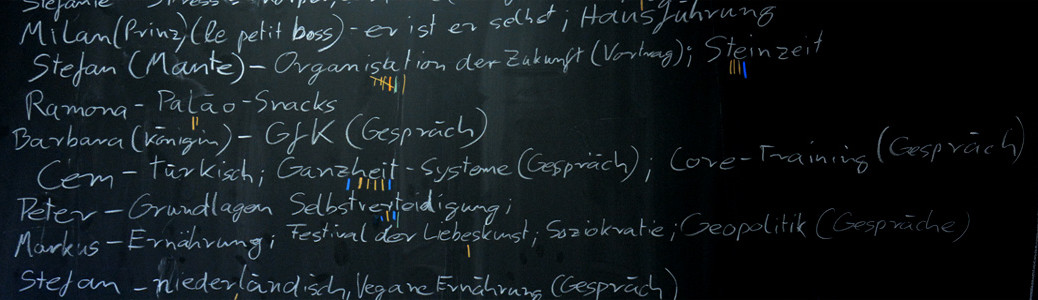 Stefanie Stress-
Milan (Prinz) (le petit boss) - er ist er selbst; Hausführung
Stefan (Mante) - Organisation der Zukunft (Vortrag); Steinzeit
Ramona - Paläo-Snacks
Barbara (Königin) - GfK (Gespräch)
Cem - Türkisch; Ganzheit-Systeme (Gespräch); Core-Training (Gespräch)
Peter - Grundlagen Selbstverteidigung;
Markus - Ernährung; Festival der Liebeskunst; Soziokratie; Geopolitik (Gespräche)
Stefan - niederländisch, Vegane Ernährung (Gespräch)